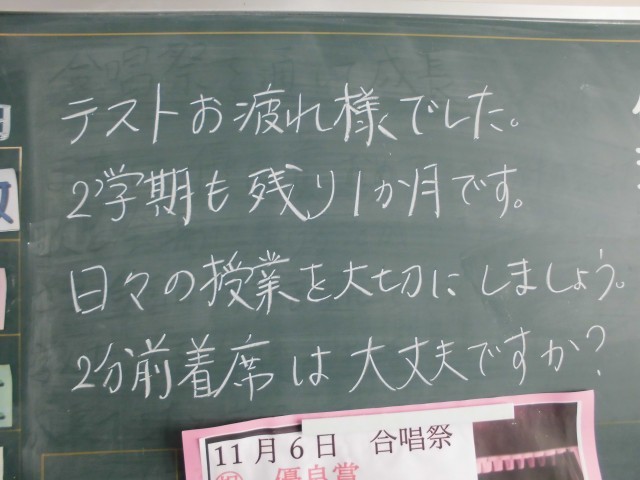 テストお疲れ様でした。
2学期も残り1か月です。
日々の授業を大切にしましょう。
2分前着席は大丈夫ですか?
11月6日 合唱祭
優良賞